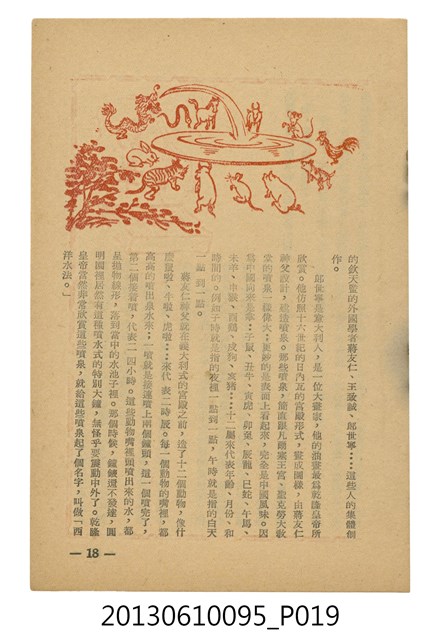 的欽天監的外國學者蔣友仁、王致誠、郎世寧……這些人的集體創
作。
郎世寧是意大利人，是一位大畫家，他的油畫最為乾隆皇帝所
欣賞。他仿照十六世紀的日內瓦的宮殿形式，畫成圖樣，由蔣友仁
神父設計，建造噴泉。那些噴泉，簡直跟凡爾塞王宮、撒克勞大教
堂的噴泉一樣偉大；更妙的是表面上看起來，完全是中國風味。因
為中國向來是拿：子鼠、丑牛、寅虎、卯兔、辰龍、巳蛇、午馬、
未羊、申猴、酉鷄、戌狗、亥豬……十二屬來代表年齡、月份、和
時間的。例如子時就是指的夜裡一點到一點，午時就是指的白天
一點到一點。
蔣友仁神父就在義大利式的宮殿之前，造了十二個動物，像什
麼鼠啦、牛啦、虎啦……來代表一時辰。每一個動物的嘴裡，都
高高的噴出泉水來；一噴就是接連噴上兩個鐘頭，這一個噴完了，
第二個接着噴，代表二四小時。這些動物嘴裡頭噴出來的水，都
是拋物線形，落到當中的水池子裡。那個時候，鐘錶還不發達，圓
明園裡居然有這種噴水式的特別大鐘，無怪乎要震動中外了。乾隆
皇帝當然非常欣賞這些噴泉，就給這些噴泉起了個名字，叫做「西
洋水法。」
— 18 —
20130610095_P019